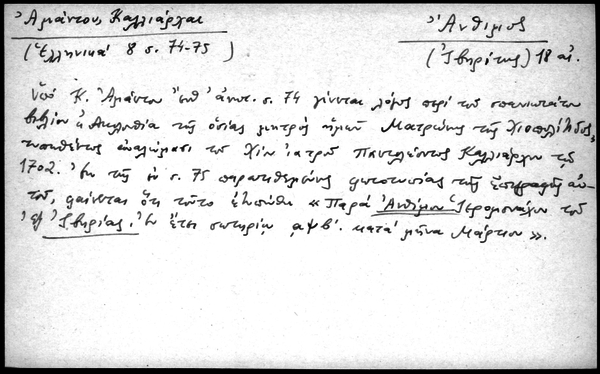 Ἀμάντου, Καλλιάρχαι
Ἄνθιμος
(Ἑλληνικά 8 σ. 74-75)
(Ἰβηρίτης) 18 αἰ.
Ὑπό Κ. Ἀμάντου ἔνθ' ἀνωτ. σ. 74 γίνεται λόγος περί τοῦ σπανιωτάτου
βιβλίου "Ἀκολουθία τῆς ὁσίας μητρός ἡμῶν Ματρώνης τῆς Χιοπολίτιδος,
τυπωθεῖσα ἀναλώμασι τοῦ Χίου ἰατροῦ Παντολέοντος Καλλιάρχου τῷ
1702. Ἐκ τῆς ἐν σ. 75 παρατιθεμένης φωτοτυπίας τῆς ἐπιγραφῆς αὐ-
τοῦ, φαίνεται ὅτι τοῦτο ἐτυπώθη «Παρά Ἀνθίμου Ἱερομονάχου τοῦ
ἐξ Ἰβηρίας. Ἐν ἔτει σωτηρίῳ ͵αψβ'. κατά μῆνα Μάρτιον».